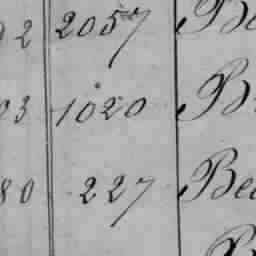 2 2057 Be
03 1020 B
80 227 Bee
B